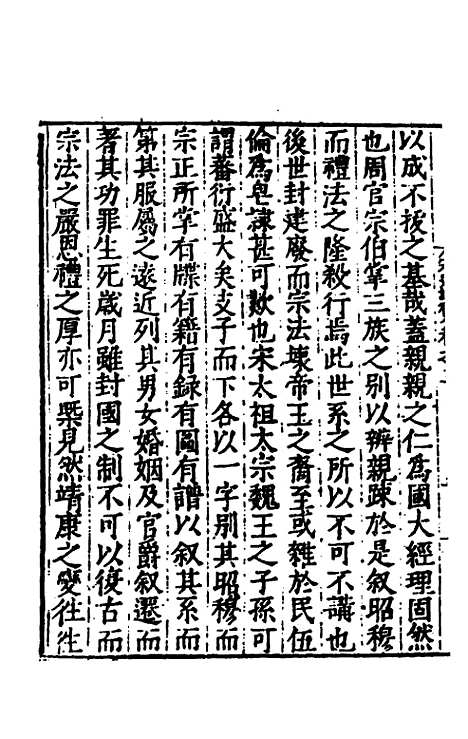 以成不拔之基哉蓋親親之仁爲國大經理固然
也周官宗伯掌三族之别以辨親踈於是叙昭穆
而禮法之隆殺行焉此世系之所以不可不講也
後世封建廢而宗法壊帝王之裔至或雜於民伍
倫爲皂隷甚可歎也宋太祖太宗魏王之子孫可
謂蕃衍盛大矣支子而下各以一字别其昭穆而
宗正所掌有牒有籍有録有圖有譜以叙其系而
第其服屬之遠近列其男女婚姻及官爵叙遷而
著其功罪生死歳月雖封國之制不可以復古而
宗法之嚴恩禮之厚亦可槩見然靖康之變往往